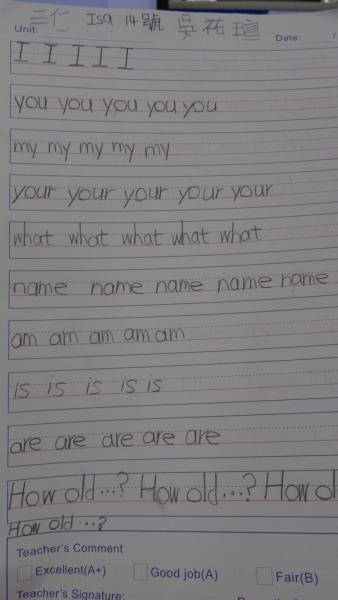 三仁 Isa 14號 吳祐瑄
Unit: Date: /
I I I I I
you you you you you
my my my my my
your your your your your
what what what what what
name name name name name
am am am am am
is is is is is
are are are are are
How old...? How old...? How ol
How old...?
Teacher's Comment
Excellent(A+) Good job(A) Fair(B)
Teacher's Signature: